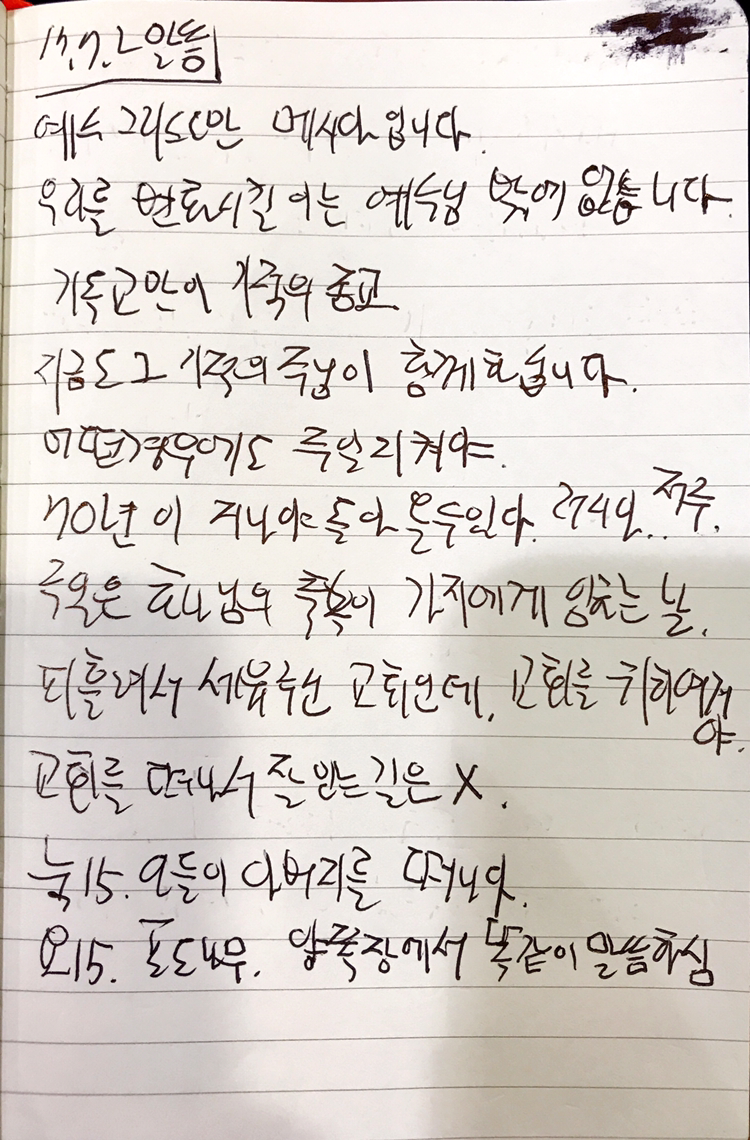 17.7.2 안동
예수 그리스도만 메시아입니다.
우리를 변화시킬 이는 예수님 밖에 없습니다.
기독교만이 기적의 종교
지금도 그 기적의 주님이 함께 하십니다.
어떤 경우에도 주일 지켜야.
70년이 지나야 돌아올 수 있다. 274인.. 저주.
주일은 하나님의 축복이 가지에게 임하는 날.
피흘려서 세워주신 교회인데, 교회를 귀히 여겨
야.
교회를 떠나서 잘 믿는 길은 X.
눅15. 아들이 아버지를 떠나.
요15. 포도나무. 양쪽장에서 똑같이 말씀하심